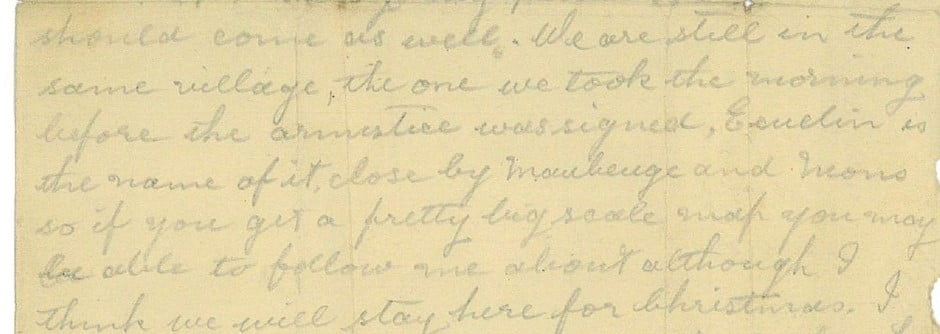 should come as well. We are still in the
same village, the one we took the morning
before the armistice was signed, Eeuelin is
the name of it, close by Maubeuge and Mons
so if you get a pretty big scale map you may
be able to follow me about although I
think we will stay here for Christmas. I